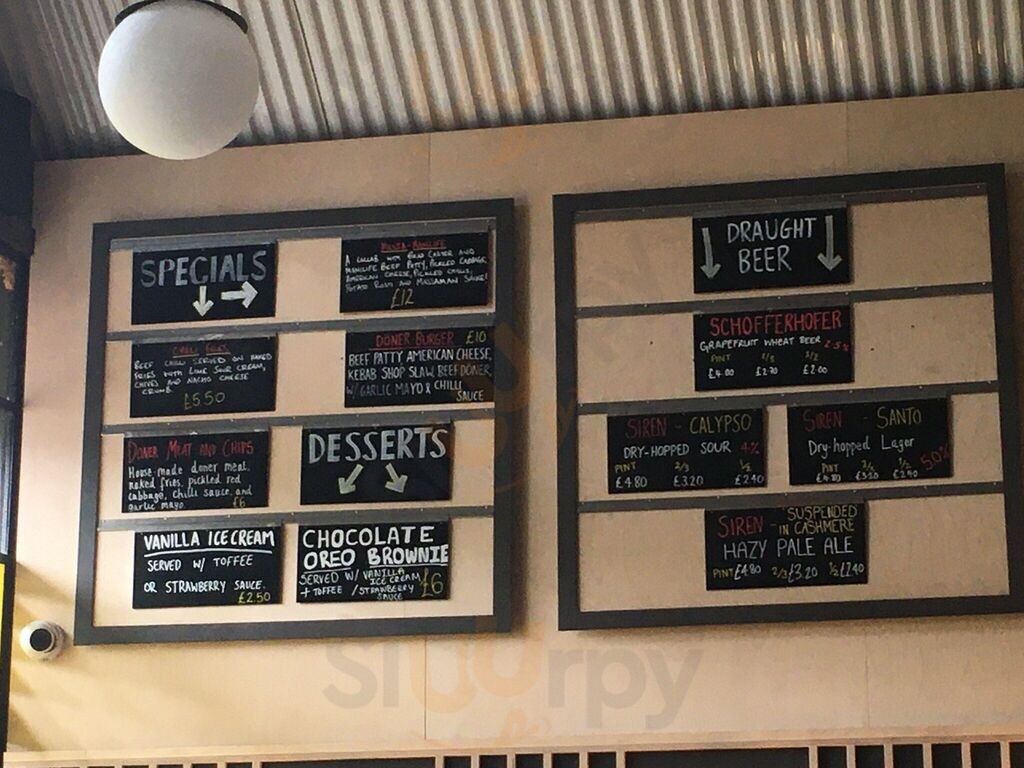 SPECIALS
A COLLAB WITH BRAD CARTER AND
MANCLIFE BEEF PATTY, PICKLED CABBAGE,
AMERICAN CHEESE, PICKLED CHILLI,
POTATO ROSTI AND MASSAMAN SAUCE!
£12
CHILLI FRIES
BEEF CHILLI SERVED ON NAKED
FRIES WITH LIME SOUR CREAM,
CHIVES AND NACHO CHEESE
CRUMB.
£5.50
DONER BURGER £10
BEEF PATTY AMERICAN CHEESE,
KEBAB SHOP SLAW, BEEF DONER,
W/ GARLIC MAYO & CHILLI
SAUCE
DONER MEAT AND CHIPS
House-made doner meat,
naked fries, pickled red
cabbage, chilli sauce, and
garlic mayo. £6
DESSERTS
VANILLA ICE CREAM
SERVED W/ TOFFEE
OR STRAWBERRY SAUCE.
£2.50
CHOCOLATE
OREO BROWNIE
SERVED W/ VANILLA
ICE CREAM
+ TOFFEE / STRAWBERRY
SAUCE
£6
DRAUGHT
BEER
SCHOFFERHOFER
GRAPEFRUIT WHEAT BEER 2.5%
PINT 2/3 1/2
£4.00 £2.70 £2.00
SIREN - CALYPSO
DRY-HOPPED SOUR 4%
PINT 2/3 1/2
£4.80 £3.20 £2.40
SIREN - SANTO
Dry-hopped Lager
PINT 2/3 1/2 5.0%
£4.80 £3.20 £2.40
SIREN - SUSPENDED
IN CASHMERE
HAZY PALE ALE
PINT £4.80 2/3 £3.20 1/2 £2.40
Sluurpy